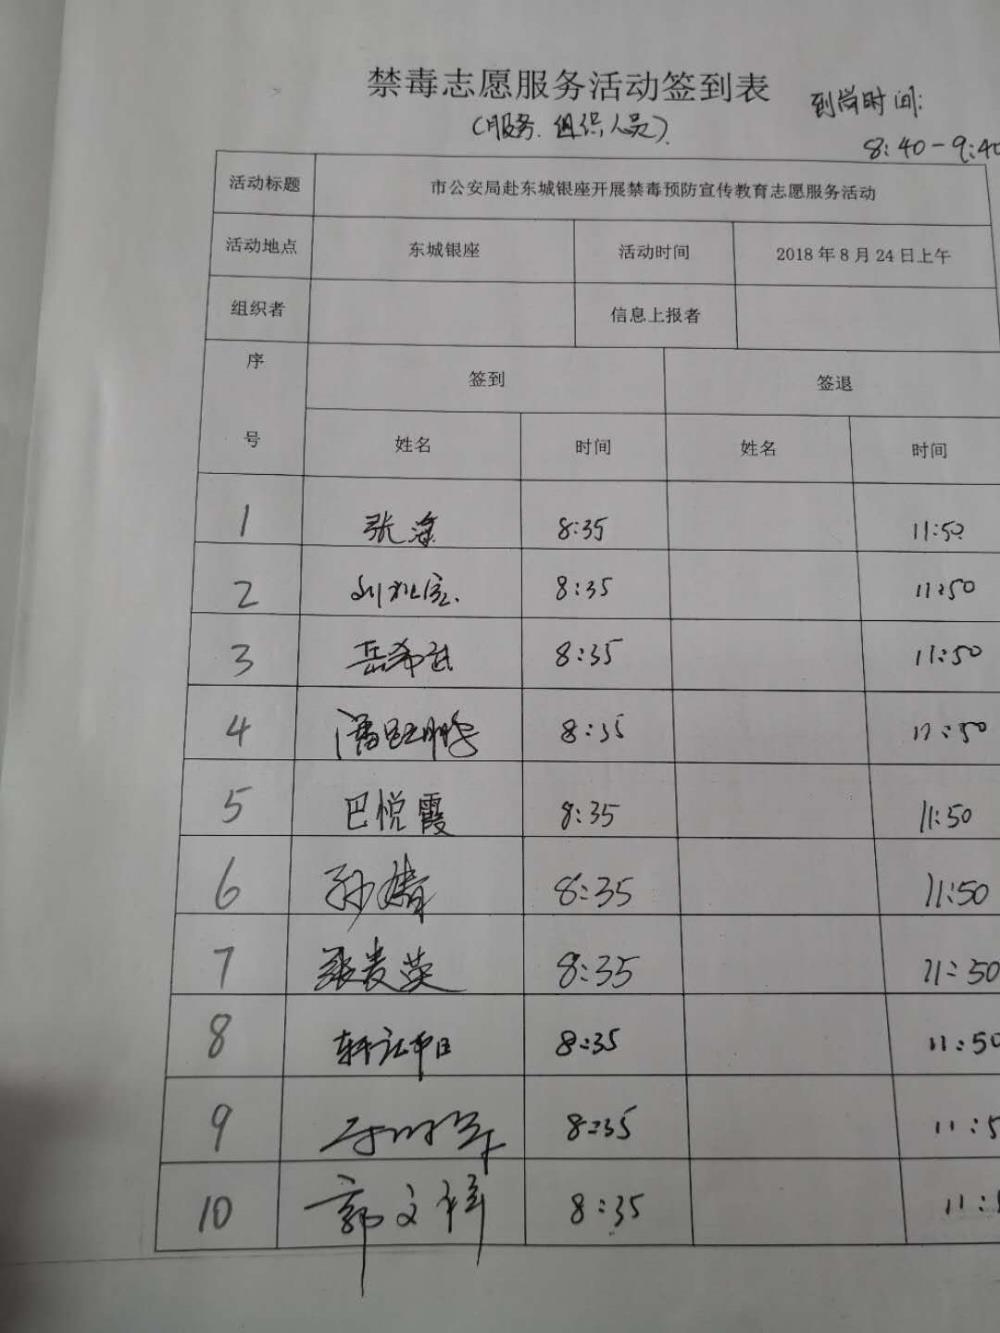 禁毒志愿服务活动签到表
(服务、组织人员)
到岗时间:
8:40-9:40
活动标题 市公安局赴东城银座开展禁毒预防宣传教育志愿服务活动
活动地点 东城银座 活动时间 2018年8月24日上午
组织者 信息上报者
序号 签到 签退
姓名 时间 姓名 时间
1 8:35 11:50
2 8:35 11:50
3 8:35 11:50
4 8:35 11:50
5 巴悦霞 8:35 11:50
6 孙婧 8:35 11:50
7 张贵英 8:35 11:50
8 8:35 11:50
9 8:35 11:5
10 郭文祥 8:35 11: